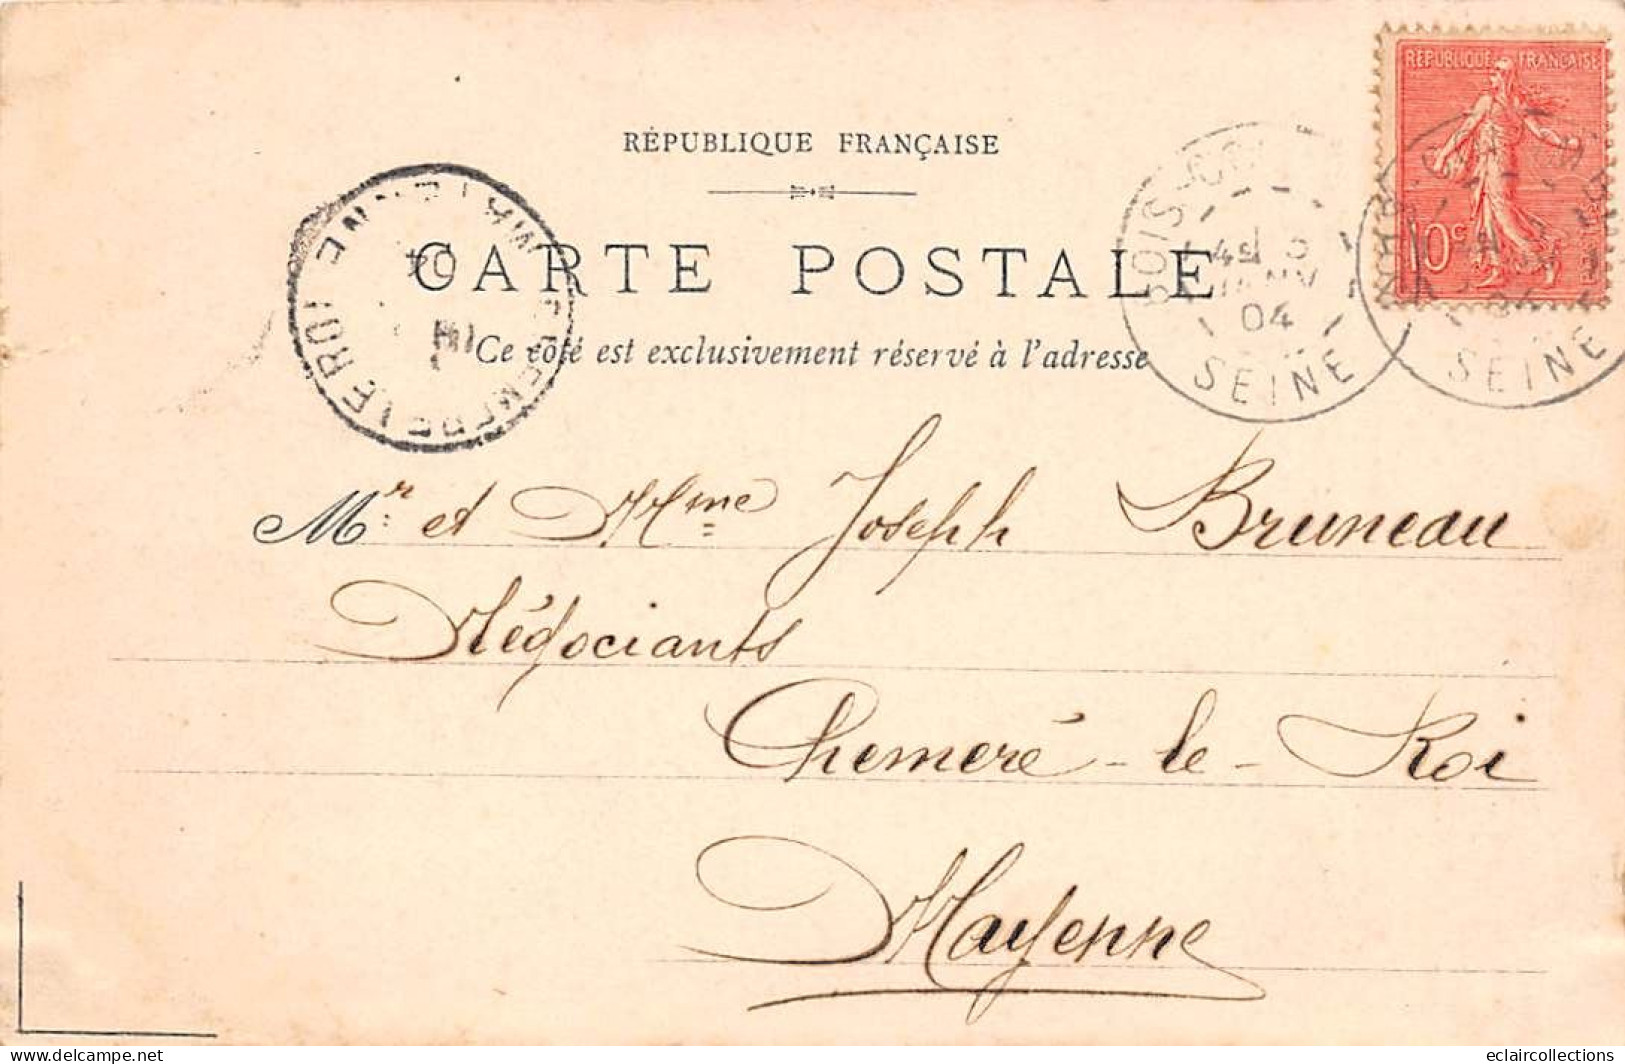 RÉPUBLIQUE FRANÇAISE
RÉPUBLIQUE FRANÇAISE
10c
CARTE POSTALE
Ce côté est exclusivement réservé à l'adresse
BOIS-COLOMBES
5e
JANV
04
SEINE
SEINE
04
LE ROI
Mr et Mme Joseph Bruneau
Négociants
Chemeré-le-Roi
Mayenne
delcampe.net
eclaircollections